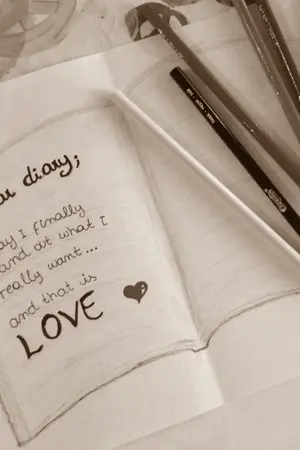 ar diary;
ay I finally
ound out what I
really want...
and that is
LOVE ♥